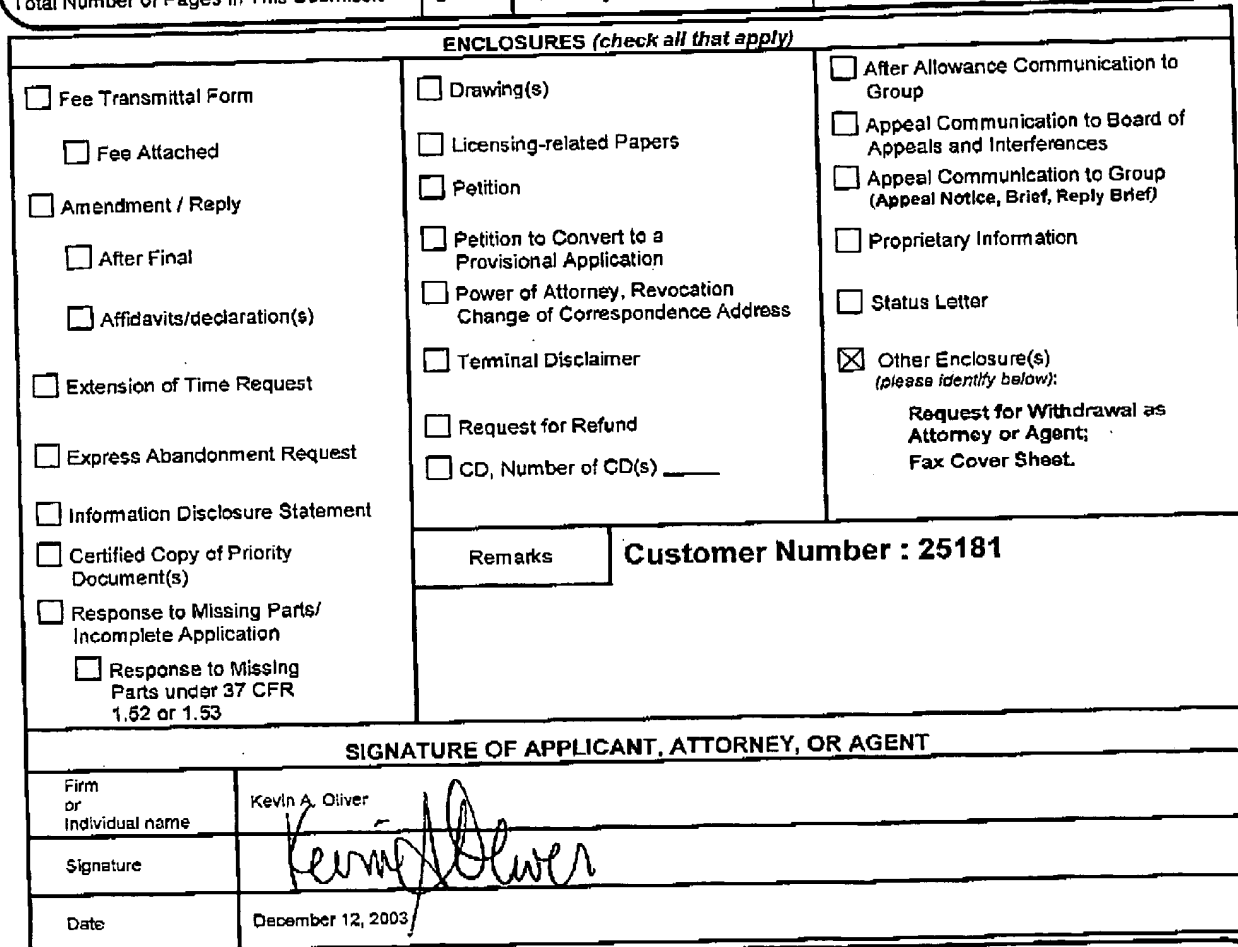 Total Number of Pages in This Submission
ENCLOSURES (check all that apply)
Fee Transmittal Form
Fee Attached
Amendment / Reply
After Final
Affidavits/declaration(s)
Extension of Time Request
Express Abandonment Request
Information Disclosure Statement
Certified Copy of Priority
Document(s)
Response to Missing Parts/
Incomplete Application
Response to Missing
Parts under 37 CFR
1.52 or 1.53
Drawing(s)
Licensing-related Papers
Petition
Petition to Convert to a
Provisional Application
Power of Attorney, Revocation
Change of Correspondence Address
Terminal Disclaimer
Request for Refund
CD, Number of CD(s)
After Allowance Communication to
Group
Appeal Communication to Board of
Appeals and Interferences
Appeal Communication to Group
(Appeal Notice, Brief, Reply Brief)
Proprietary Information
Status Letter
Other Enclosure(s)
(please identify below):
Request for Withdrawal as
Attorney or Agent;
Fax Cover Sheet.
Remarks
Customer Number : 25181
SIGNATURE OF APPLICANT, ATTORNEY, OR AGENT
Firm
or
Individual name
Kevin A. Oliver
Signature
Kevin A Oliver
Date
December 12, 2003